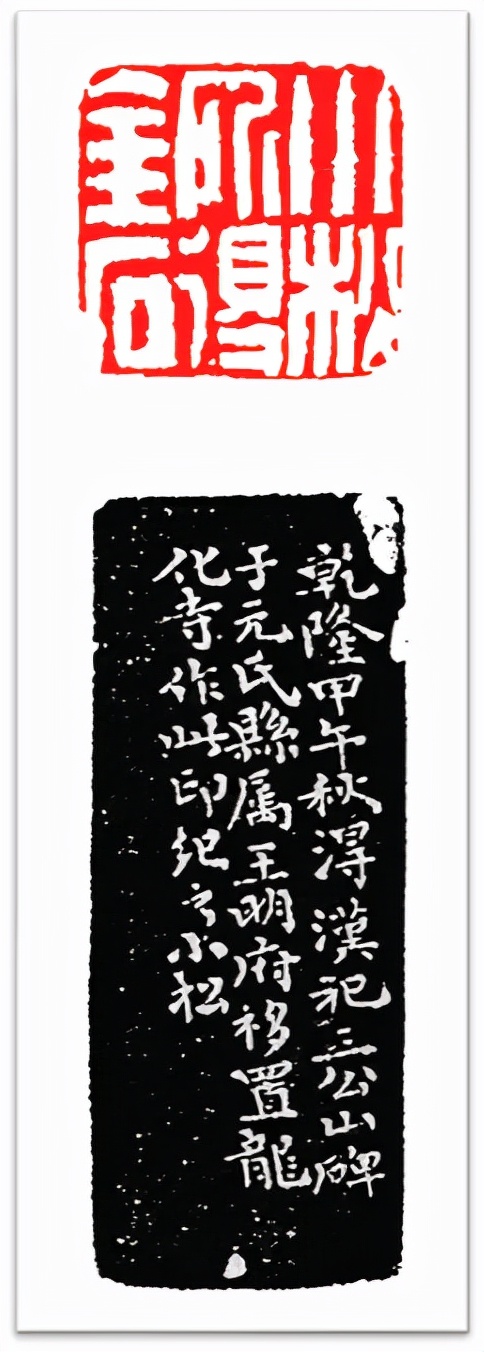 小松
所得
金石
乾隆甲午秋得漢祀三公山碑
于元氏縣属王明府移置龍
化寺作此印纪之小松